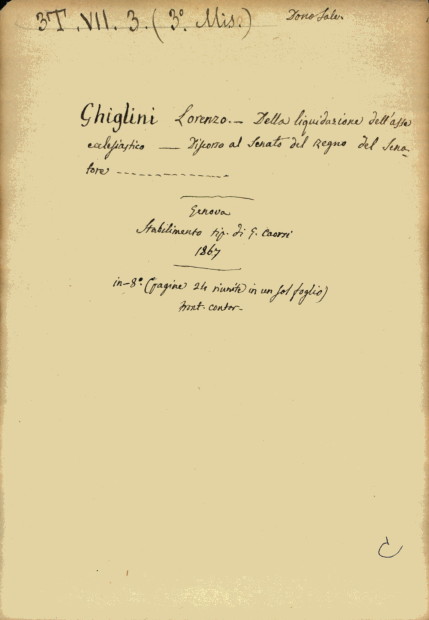 3ª T. VII. 3. (3º. Mis.)
Dono Sale.
Ghiglini Lorenzo. — Della liquidazione dell'asse
ecclesiastico — Discorso al Senato del Regno del Sena-
tore -------------
Genova
Stabilimento tip. di G. Caorsi
1867
in-8º. (pagine 24 riunite in un sol foglio)
Front. contor-